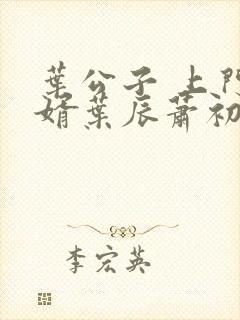 葉公子 上門
婿葉辰蕭初
李宏英